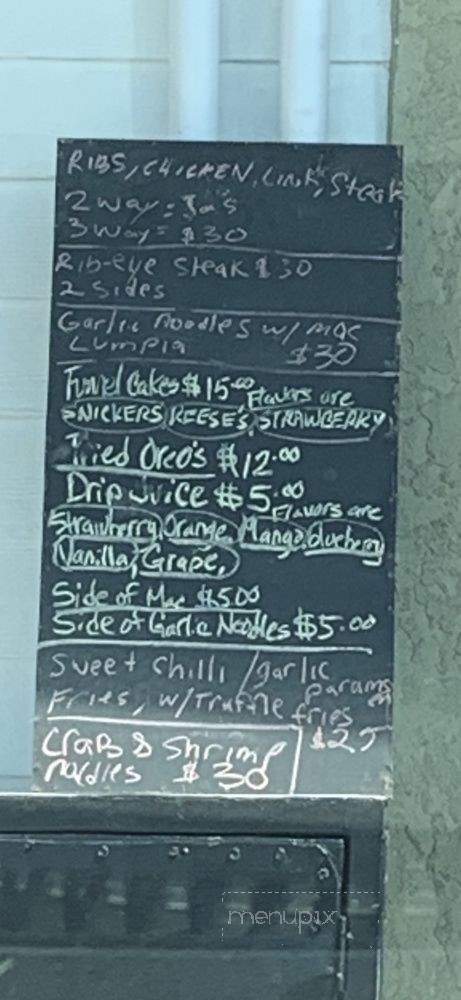 RIBS, CHICKEN, Link, Steak
2 way =
3 way = $30
Rib-eye Steak $30
2 Sides
Garlic Noodles w/ mac
Lumpia $30
Funnel Cakes $15.00 Flavors are
SNICKERS, REESE'S, STRAWBERRY
Fried Oreo's $12.00
Drip Juice $5.00
Flavors are
Strawberry, Orange, Mango, blueberry
Vanilla, Grape,
Side of Mac $5.00
Side of Garlic Noodles $5.00
Sweet Chilli / garlic
param
Fries, w/Truffle fries
$25
Crab & Shrimp
noodles $30
menupix